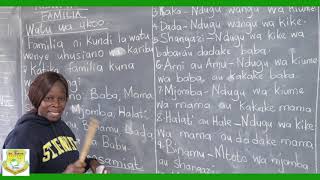 FAMILIA
Watu wa ukoo.
Familia ni Kundi la watu
wenye uhusiano wa karibu
Katika familia kuna
Baba, Mama
Mjomba, Halati
Dada
Babu
3. Kaka - Ndugu wangu wa Kiume
4. Dada - Ndugu wangu wa kike
5. Shangazi - Ndugu wa kike wa
baba au dadake baba.
6. Ami au Amu - Ndugu wa kiume
wa baba, au kakake baba.
7. Mjomba - Ndugu wa kiume
wa mama au kakake mama
8. Halati au Hale - Ndugu wa kike
wa mama au dadake mama
9. Binamu - Mtoto wa mjomba
au shangazi